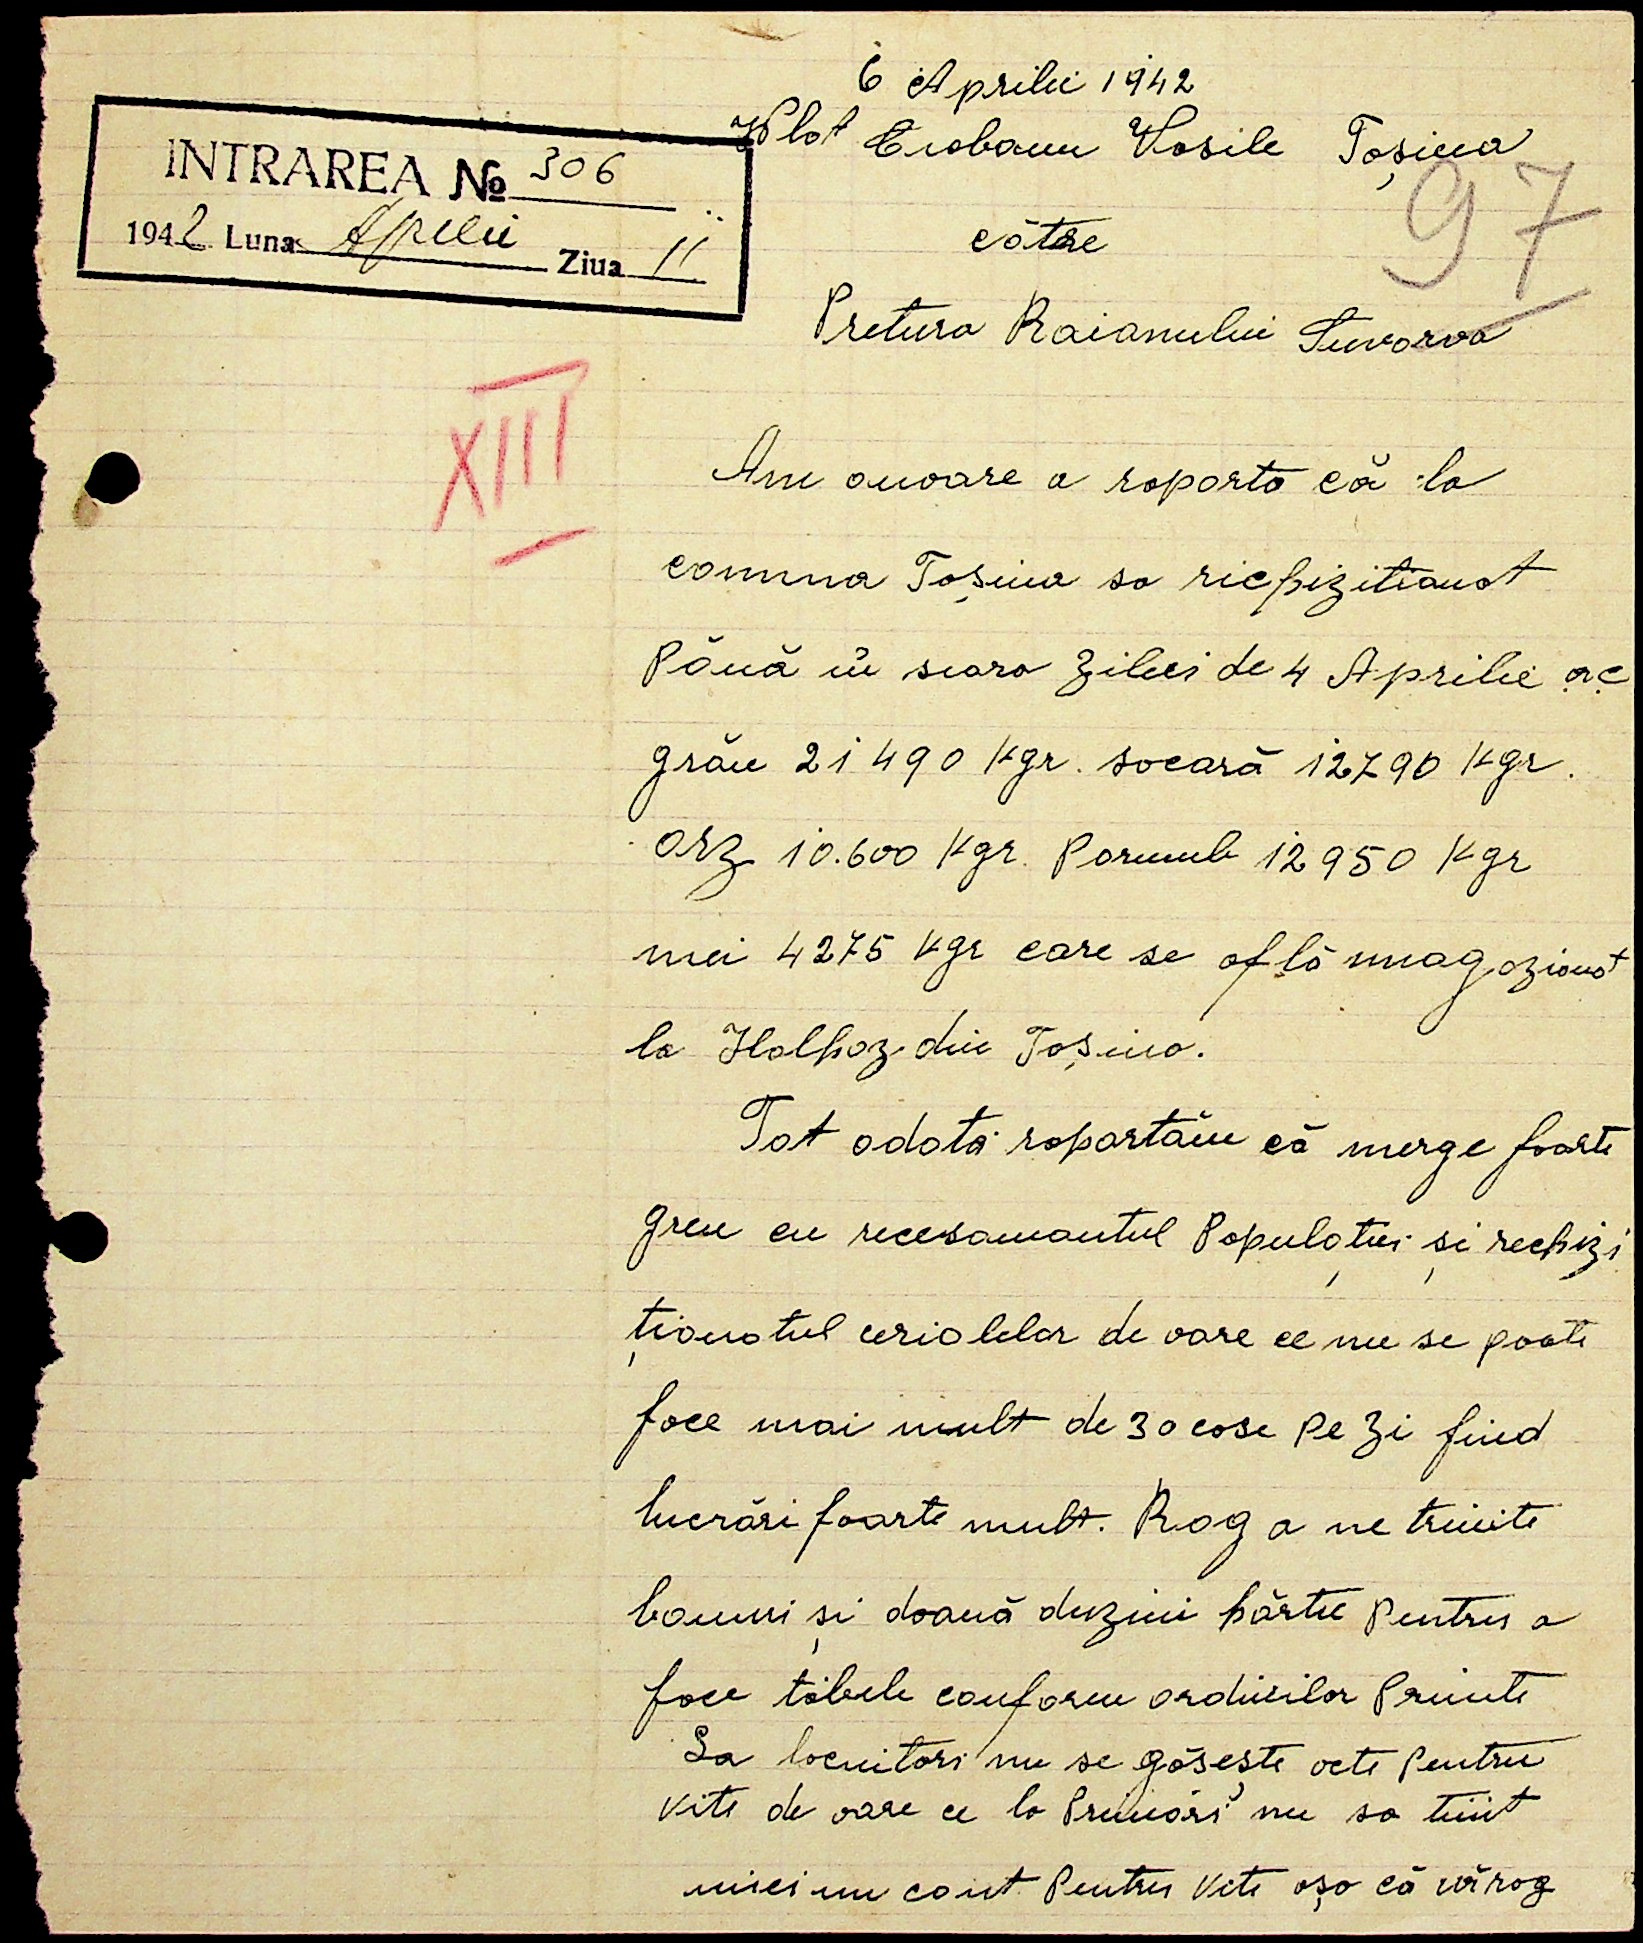 6 Aprilie 1942
Plot Ciobanu Vasile Toșina
INTRAREA № 306
1942 Luna Aprilie Ziua 11
97
către
Pretura Raianului Suvorva
XIII
Am onoare a raporta că la
comuna Toșina sa richizitianat
Până în seara zilei de 4 Aprilie ac
grău 21490 Kgr. sacară 12790 Kgr.
orz 10.600 Kgr. Parumb 12950 Kgr
mei 4275 Kgr care se află magazianat
la Halhoz din Toșina.
Tat adată rapartăm că merge foarte
greu cu recesamantul Populației și rechizi
ționatul cerialelor de oare ce nu se poate
face mai mult de 30 case pe zi fiind
lucrări foarte mult. Rog a ne trimite
banuri și doauă duzini hărtie Pentru a
face tabele conform ordinilor Primite
La locuitari nu se găsește acte Pentru
vite de oare ce la Primări nu sa ținut
nici un cont Pentru vite așa că vă rog